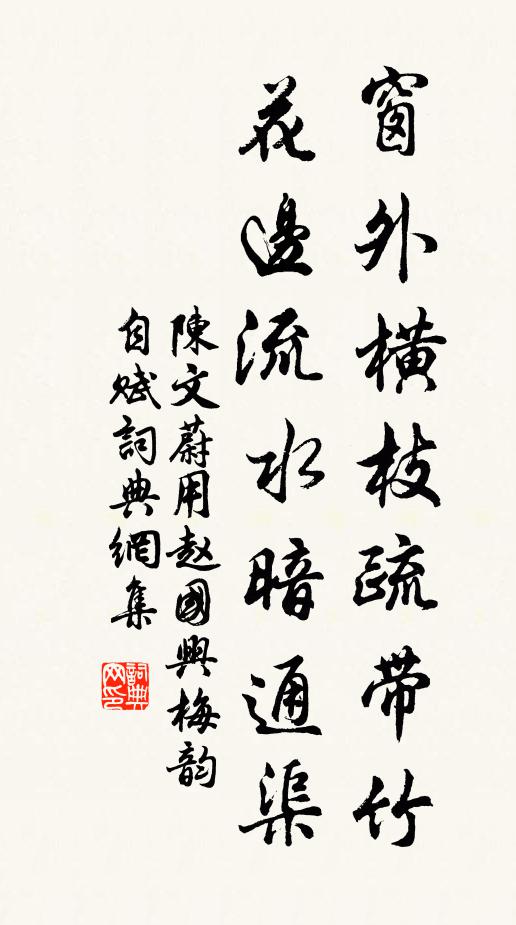 窗外橫枝疏帶竹
花邊流水暗通渠
陳文蔚用赵國興梅韵
自赋詞典網集
詞典
网印